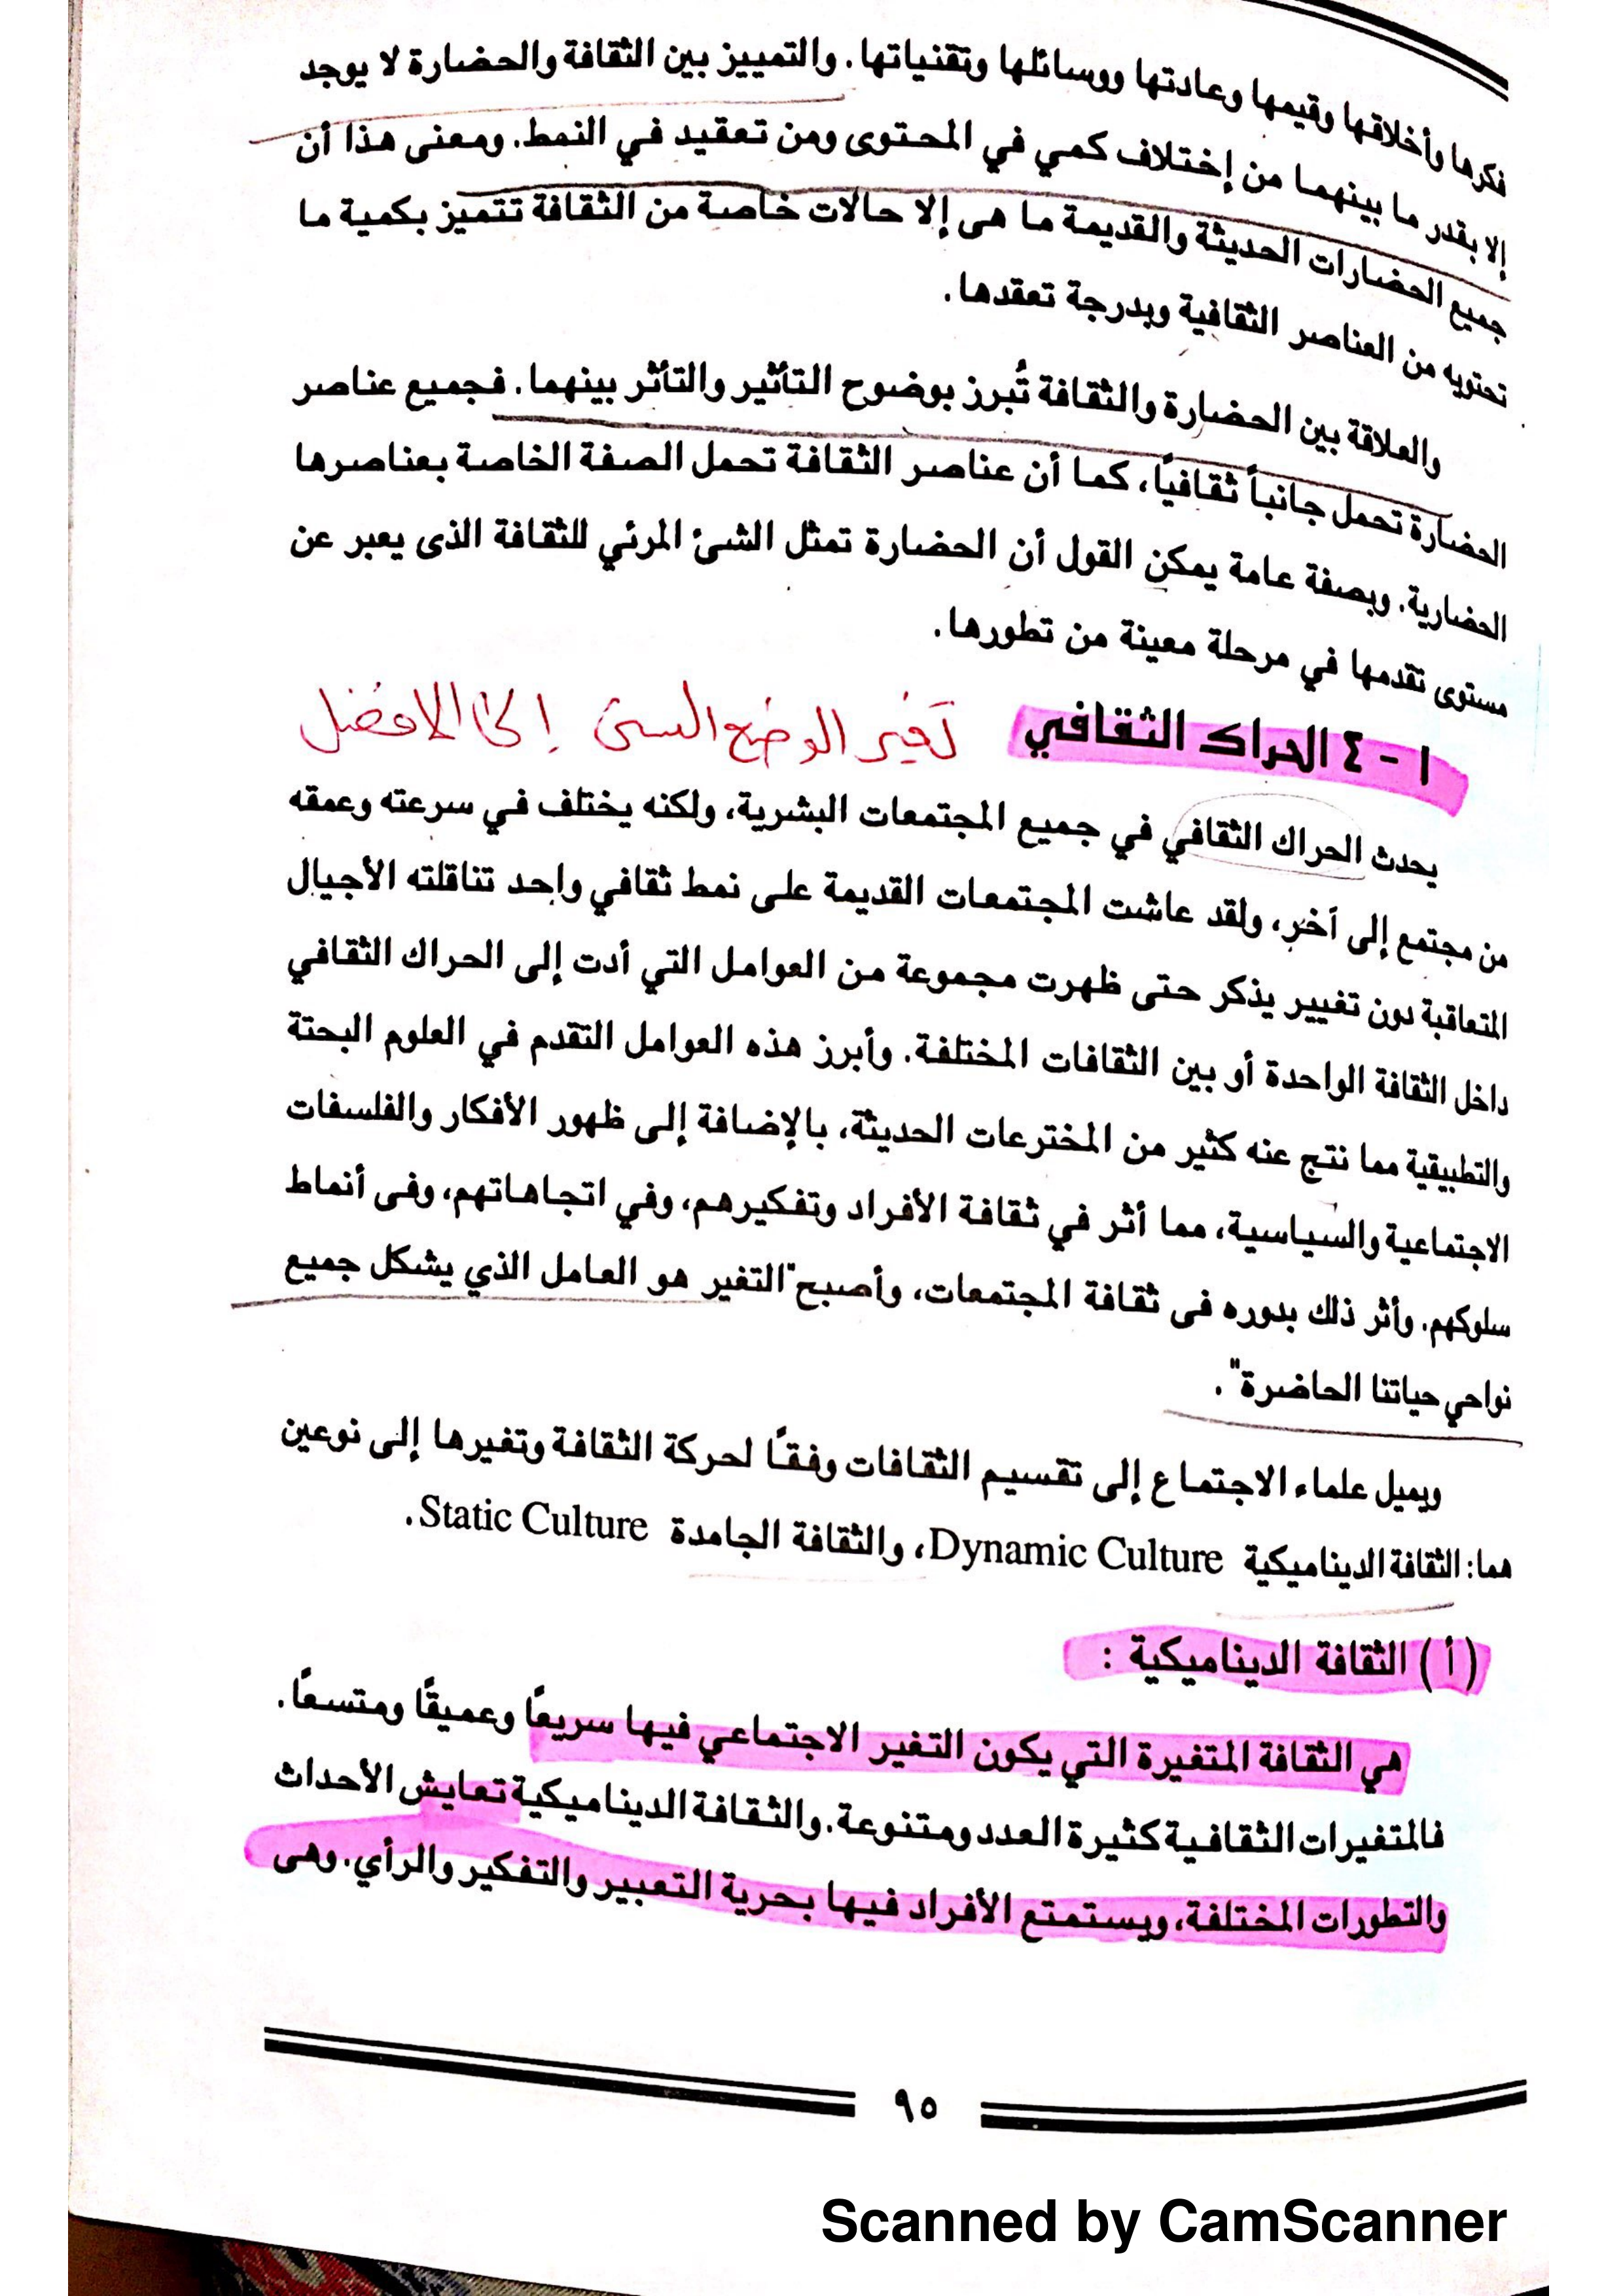 فكرها وأخلاقها وقيمها وعادتها ووسائلها وتقنياتها. والتمييز بين الثقافة والحضارة لا يوجد
إلا بقدر ما بينهما من إختلاف كمي في المحتوى ومن تعقيد في النمط. ومعنى هذا أن
جميع الحضارات الحديثة والقديمة ما هى إلا حالات خاصة من الثقافة تتميز بكمية ما
تحتويه من العناصر الثقافية وبدرجة تعقدها.
والعلاقة بين الحضارة والثقافة تُبرز بوضوح التأثير والتأثر بينهما. فجميع عناصر
الحضارة تحمل جانباً ثقافيًا، كما أن عناصر الثقافة تحمل الصفة الخاصة بعناصرها
الحضارية. وبصفة عامة يمكن القول أن الحضارة تمثل الشئ المرئي للثقافة الذى يعبر عن
مستوى تقدمها في مرحلة معينة من تطورها.
١ - ٤ الحراك الثقافي تغير الوضع السئ إلى الافضل
يحدث الحراك الثقافي في جميع المجتمعات البشرية، ولكنه يختلف في سرعته وعمقه
من مجتمع إلى آخر، ولقد عاشت المجتمعات القديمة على نمط ثقافي واحد تناقلته الأجيال
المتعاقبة دون تغيير يذكر حتى ظهرت مجموعة من العوامل التي أدت إلى الحراك الثقافي
داخل الثقافة الواحدة أو بين الثقافات المختلفة. وأبرز هذه العوامل التقدم في العلوم البحتة
والتطبيقية مما نتج عنه كثير من المخترعات الحديثة، بالإضافة إلى ظهور الأفكار والفلسفات
الاجتماعية والسياسية، مما أثر في ثقافة الأفراد وتفكيرهم، وفي اتجاهاتهم، وفى أنماط
سلوكهم. وأثر ذلك بدوره فى ثقافة المجتمعات، وأصبح "التغير هو العامل الذي يشكل جميع
نواحي حياتنا الحاضرة".
ويميل علماء الاجتماع إلى تقسيم الثقافات وفقًا لحركة الثقافة وتغيرها إلى نوعين
هما: الثقافة الديناميكية Dynamic Culture، والثقافة الجامدة Static Culture.
(أ) الثقافة الديناميكية :
هي الثقافة المتغيرة التي يكون التغير الاجتماعي فيها سريعًا وعميقًا ومتسعًا.
فالمتغيرات الثقافية كثيرة العدد ومتنوعة. والثقافة الديناميكية تعايش الأحداث
والتطورات المختلفة، ويستمتع الأفراد فيها بحرية التعبير والتفكير والرأي. وهى
٩٥
Scanned by CamScanner